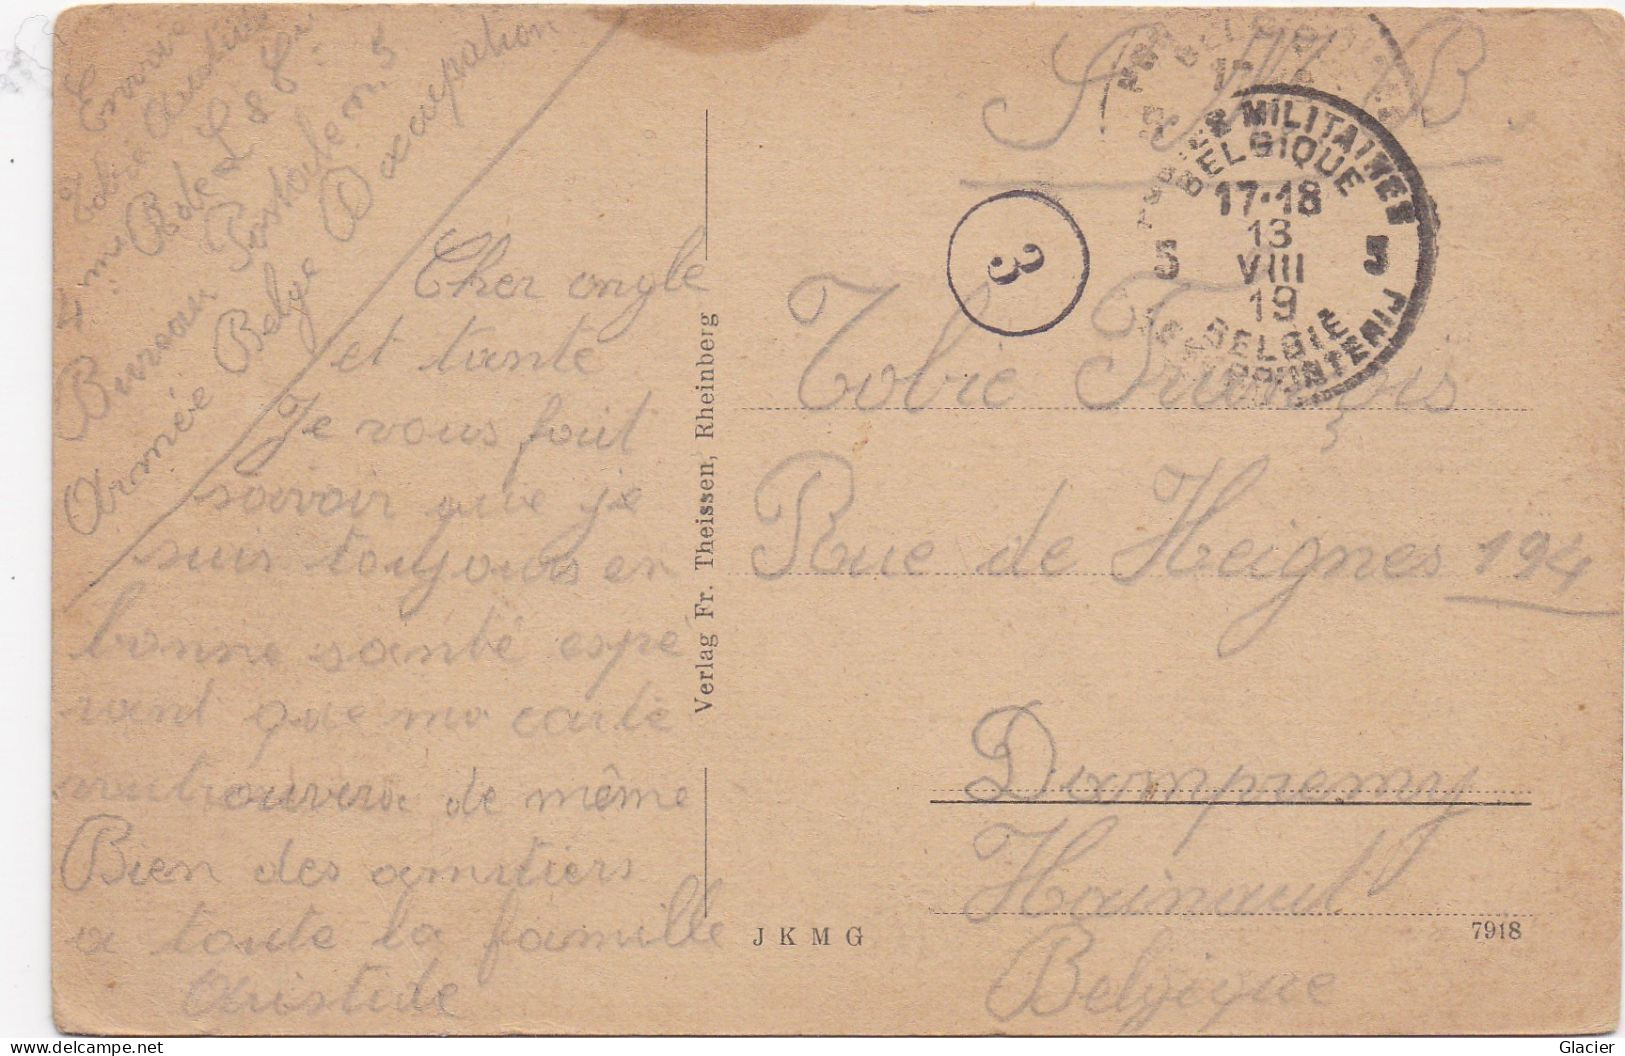 Envoie
Tobie Aristide
4 me Bat
Bureau Postale m. 5
Armée Belge D Occupation
Cher ongle
et tante
Je vous fait
savoir que je
suis toujours en
bonne santé espé
rant que ma carte
ouvera de même
Bien des amitiers
a toute la famille
Aristide
Verlag Fr. Theissen, Rheinberg
J K M G
S. M. B.
POSTES MILITAIRES
BELGIQUE
17-18
13
VIII
19
5 5
BELGIE
3
Tobie François
Rue de Heignes 194
Dampremy
Hainaut
Belgique
7918
Glacier
delcampe.net